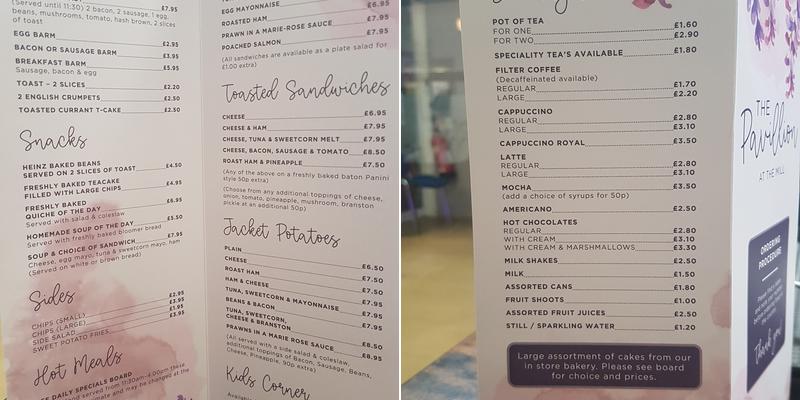 (Served until 11:30) 2 bacon, 2 sausage, 1 egg, £7.95
beans, mushrooms, tomato, hash brown, 2 slices
of toast
EGG BARM £2.95
BACON OR SAUSAGE BARM £3.95
BREAKFAST BARM £5.95
Sausage, bacon & egg
TOAST - 2 SLICES £2.20
2 ENGLISH CRUMPETS £2.50
TOASTED CURRANT T-CAKE £2.50
Snacks
HEINZ BAKED BEANS
SERVED ON 2 SLICES OF TOAST £4.50
FRESHLY BAKED TEACAKE
FILLED WITH LARGE CHIPS £4.95
FRESHLY BAKED
QUICHE OF THE DAY £6.95
Served with salad & coleslaw
HOMEMADE SOUP OF THE DAY £5.50
Served with freshly baked bloomer bread
SOUP & CHOICE OF SANDWICH £7.95
Cheese, egg mayo, tuna & sweetcorn mayo, ham
(Served on white or brown bread)
Sides
CHIPS (SMALL) £2.95
CHIPS (LARGE) £3.95
SIDE SALAD £1.95
SWEET POTATO FRIES £3.95
Hot Meals
DAILY SPECIALS BOARD
served from 11:30am-4:00pm these
and may be changed at the
EGG MAYONNAISE £6.95
ROASTED HAM £7.95
PRAWN IN A MARIE-ROSE SAUCE £7.95
POACHED SALMON £7.95
(All sandwiches are available as a plate salad for
£1.00 extra)
Toasted Sandwiches
CHEESE £6.95
CHEESE & HAM £7.95
CHEESE, TUNA & SWEETCORN MELT £7.95
CHEESE, BACON, SAUSAGE & TOMATO £8.50
ROAST HAM & PINEAPPLE £7.50
(Any of the above on a freshly baked baton Panini
style 50p extra)
(Choose from any additional toppings of cheese,
onion, tomato, pineapple, mushroom, branston
pickle at an additional 50p)
Jacket Potatoes
PLAIN £6.50
CHEESE £7.50
ROAST HAM £7.50
HAM & CHEESE £7.95
TUNA, SWEETCORN & MAYONNAISE £7.95
BEANS & BACON £7.95
TUNA, SWEETCORN,
CHEESE & BRANSTON £8.50
PRAWNS IN A MARIE ROSE SAUCE £8.95
(All served with a side salad & coleslaw,
additional toppings of Bacon, Sausage, Beans,
Cheese, Pineapple, 90p extra)
Kid's Corner
POT OF TEA
FOR ONE £1.60
FOR TWO £2.90
SPECIALITY TEA'S AVAILABLE £1.80
FILTER COFFEE
(Decaffeinated available)
REGULAR £1.70
LARGE £2.20
CAPPUCCINO
REGULAR £2.80
LARGE £3.10
CAPPUCCINO ROYAL £3.50
LATTE
REGULAR £2.80
LARGE £3.10
MOCHA £3.50
(add a choice of syrups for 50p)
AMERICANO £2.50
HOT CHOCOLATES
REGULAR £2.80
WITH CREAM £3.10
WITH CREAM & MARSHMALLOWS £3.30
MILK SHAKES £2.50
MILK £1.50
ASSORTED CANS £1.80
FRUIT SHOOTS £1.00
ASSORTED FRUIT JUICES £2.50
STILL / SPARKLING WATER £1.20
Large assortment of cakes from our
in store bakery. Please see board
for choice and prices.
THE
Pavillion
AT THE MILL
ORDERING
PROCEDURE
Thank you